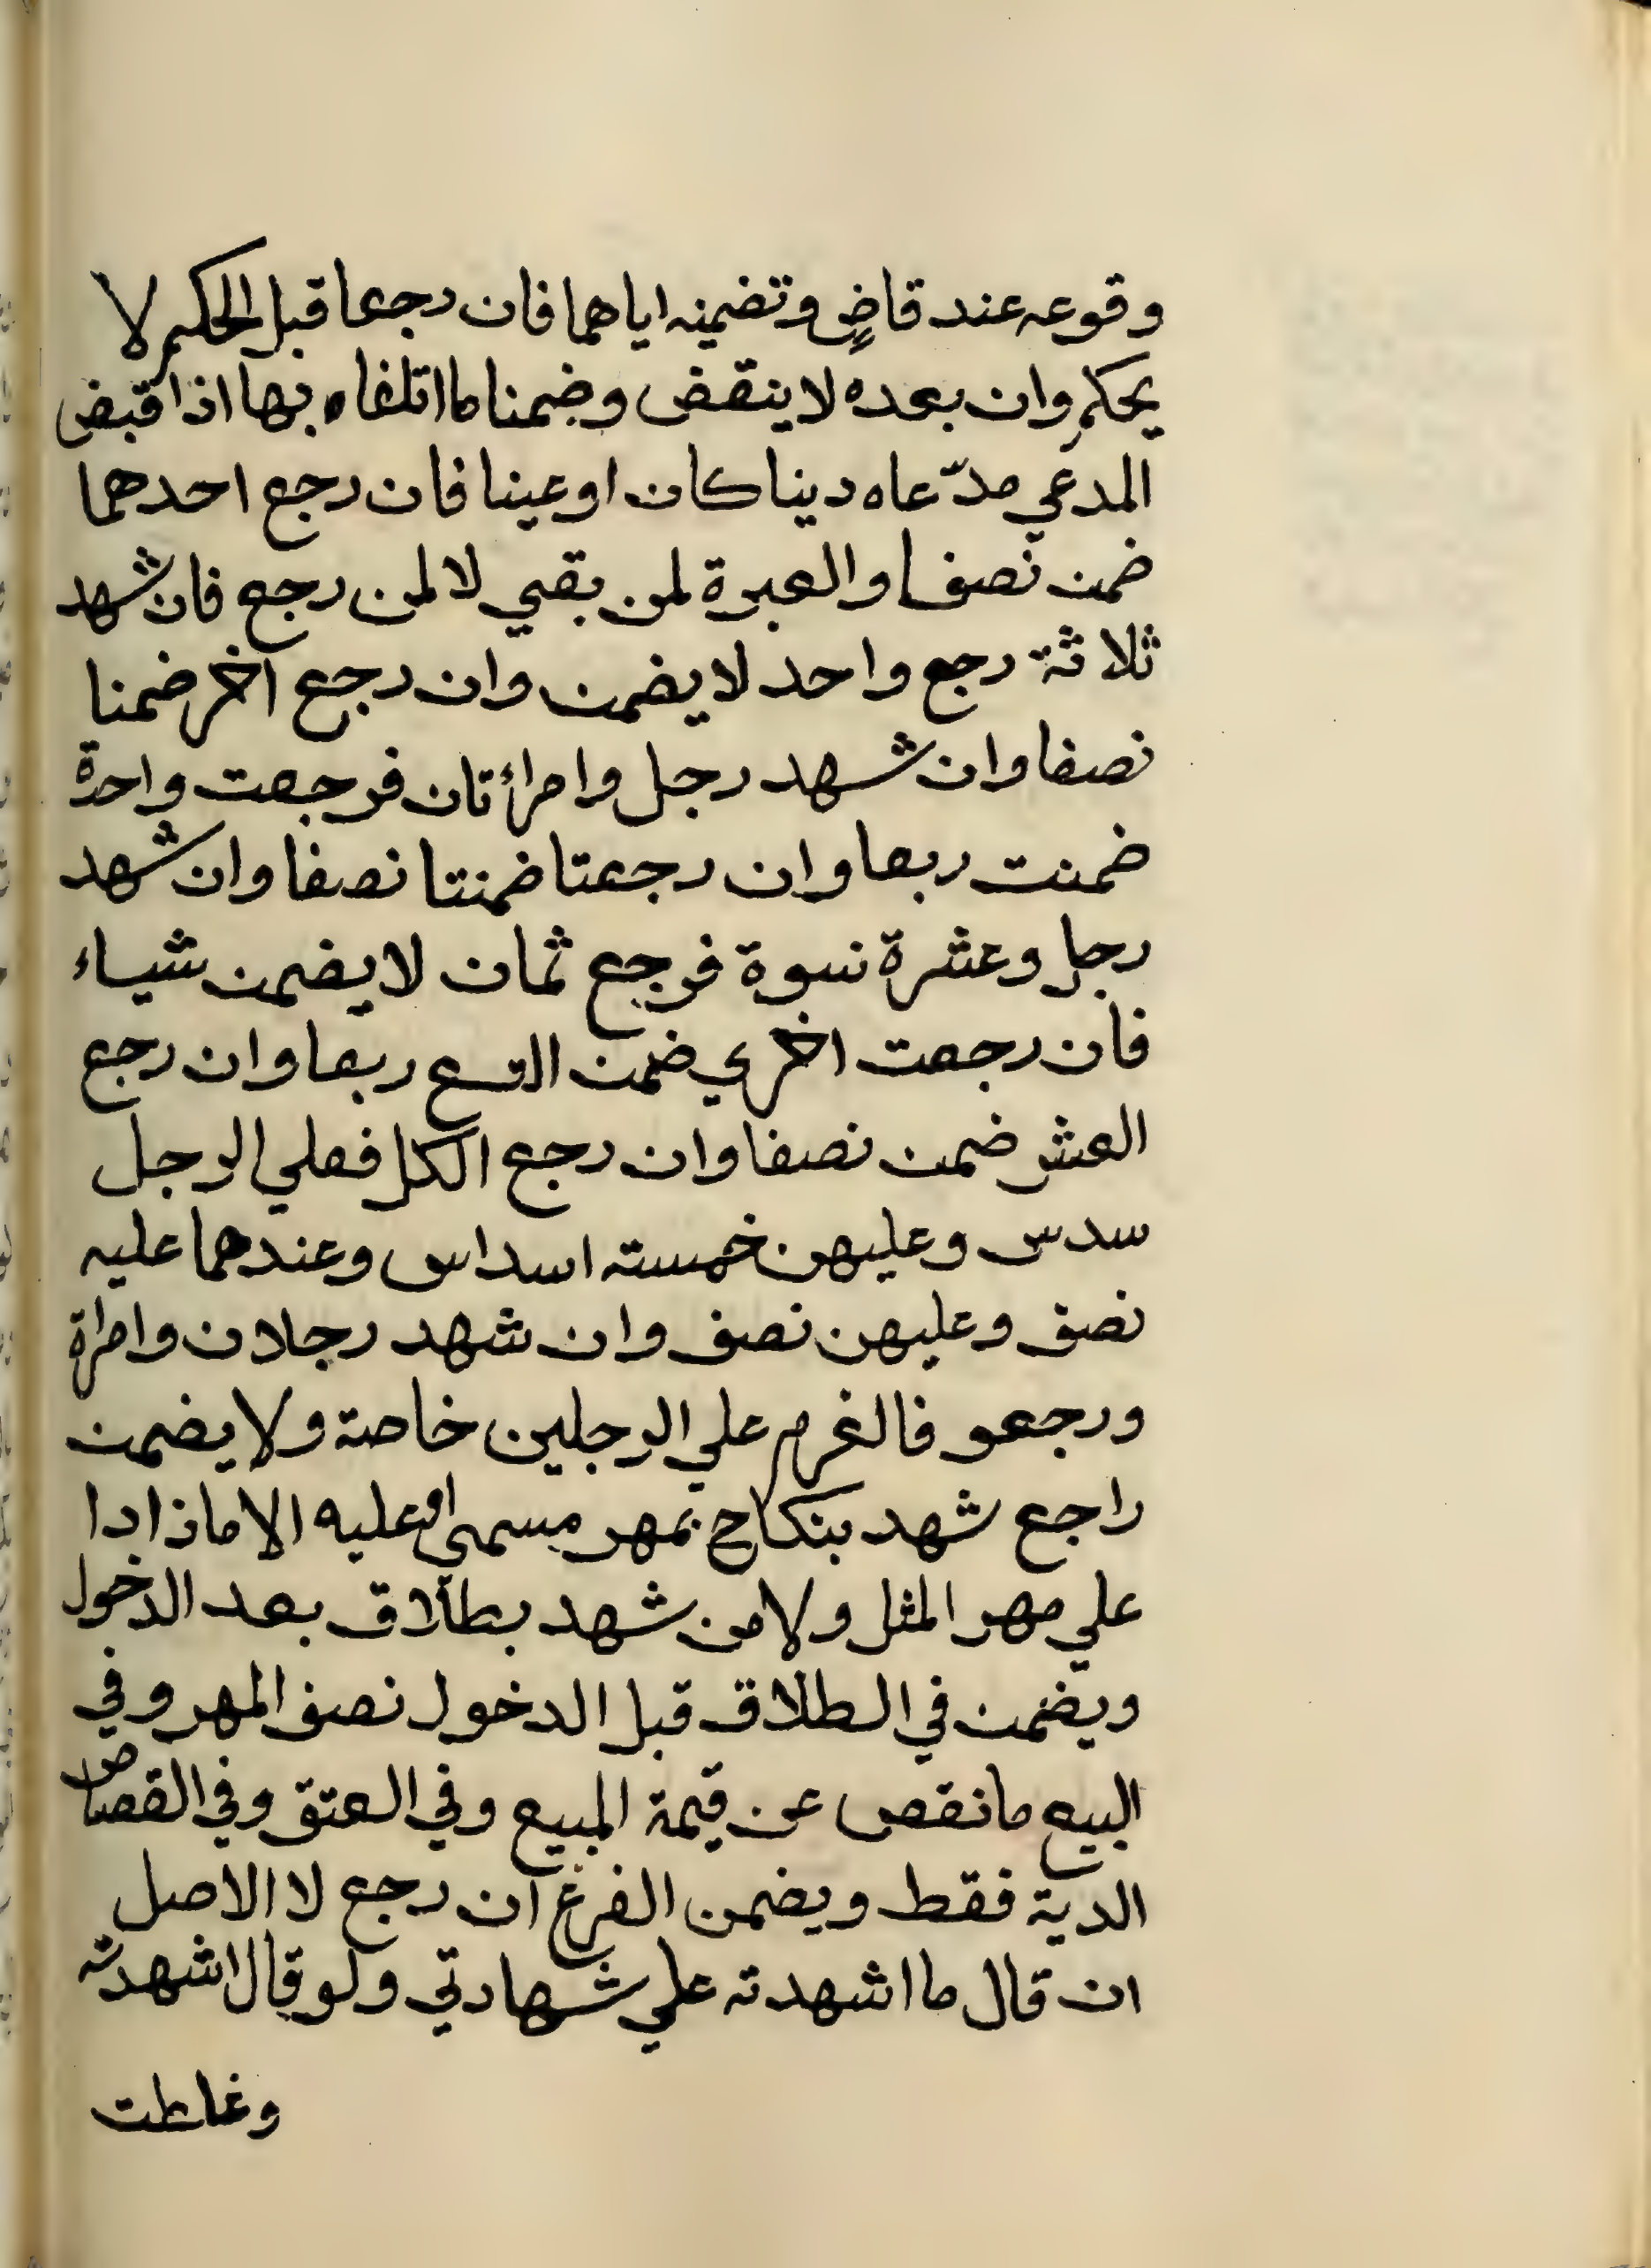 وقوعه عند قاضٍ وتضمينه اياهما فان رجعا قبل الحكم لا
يحكم وان بعده لا ينقض وضمنا ما اتلفاه بها اذا قبض
المدعي مدّعاه دينا كان او عينا فان رجع احدهما
ضمن نصفا والعبرة لمن بقي لا لمن رجع فان شهد
ثلاثة رجع واحد لا يضمن وان رجع آخر ضمنا
نصفا وان شهد رجل وامرائتان فرجعت واحدة
ضمنت ربعا وان رجعتا ضمنتا نصفا وان شهد
رجل وعشرة نسوة فرجع ثمان لا يضمن شياء
فان رجعت اخري ضمن التسع ربعا وان رجع
العشر ضمن نصفا وان رجع الكل فعلي الرجل
سدس وعليهن خمسته اسداس وعندهما عليه
نصف وعليهن نصف وان شهد رجلان وامراة
ورجعو فالغرم علي الرجلين خاصة ولا يضمن
راجع شهد بنكاح بمهر مسمي او عليه الا ماذادا
علي مهر المثل ولا من شهد بطلاق بعد الدخول
ويضمن في الطلاق قبل الدخول نصف المهر وفي
البيع ما نقص عن قيمة المبيع وفي العتق وفي القصاص
الدية فقط ويضمن الفرع ان رجع لا الاصل
ان قال ما اشهدته علي شهادتي ولو قال اشهدته
وغلطت